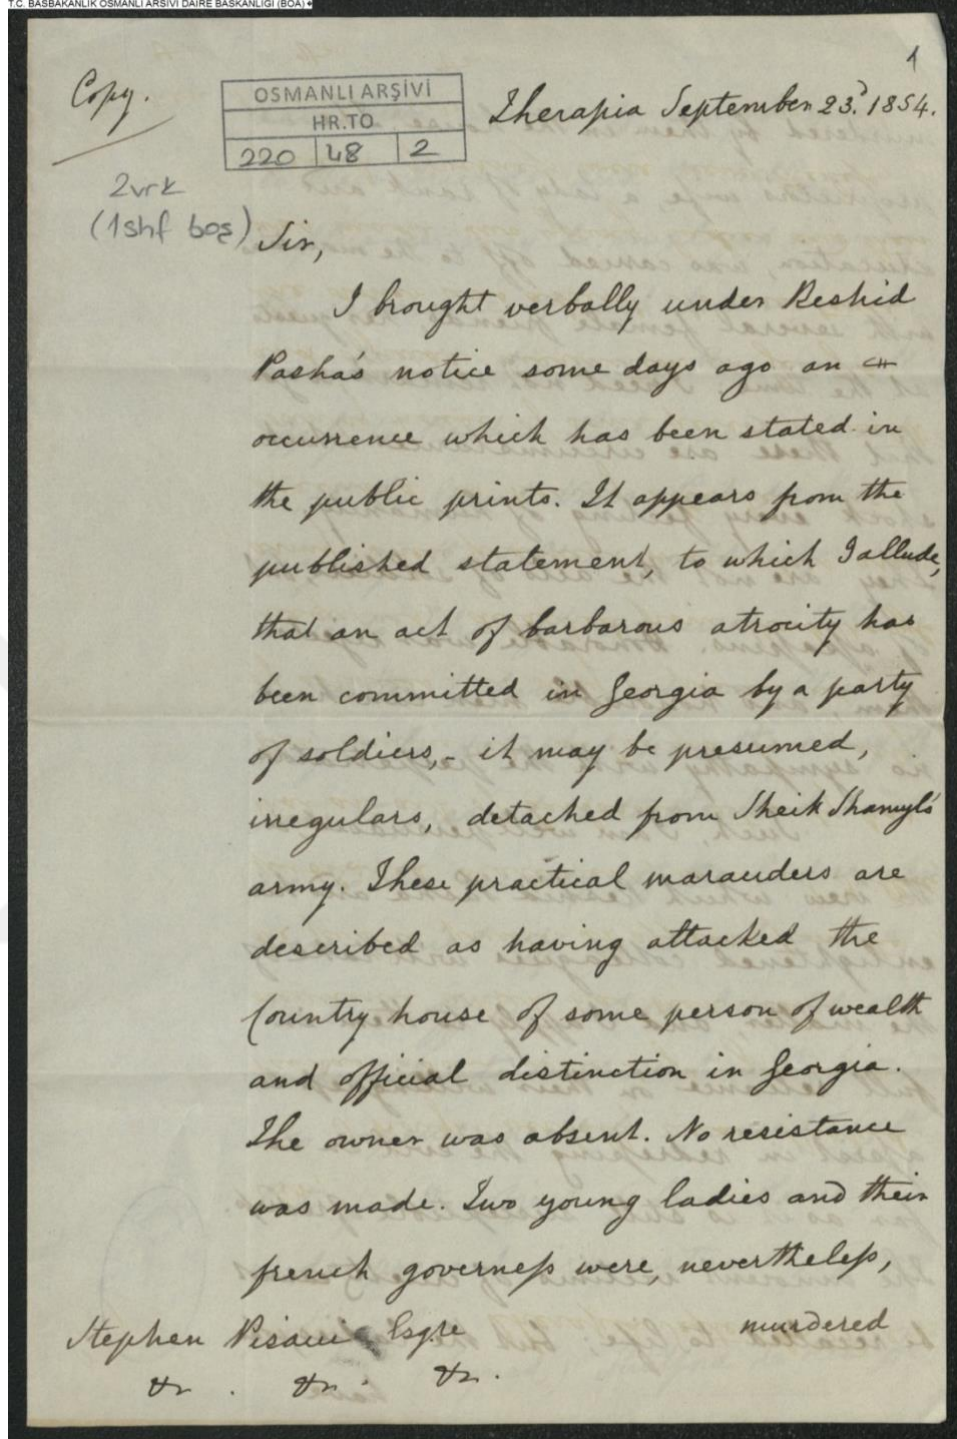 T.C. BAŞBAKANLIK OSMANLI ARŞİVİ DAİRE BAŞKANLIĞI (BOA)
1
Copy.
OSMANLI ARŞİVİ
HR.TO
220 48 2
Therapia September 23d. 1854.
2vrk
(1shf boş)
Sir,
I brought verbally under Reshid
Pasha's notice some days ago an
occurrence which has been stated in
the public prints. It appears from the
published statement, to which I allude,
that an act of barbarous atrocity has
been committed in Georgia by a party
of soldiers,- it may be presumed,
irregulars, detached from Sheik Shamyl's
army. These practical marauders are
described as having attacked the
Country house of some person of wealth
and official distinction in Georgia.
The owner was absent. No resistance
was made. Two young ladies and their
french governess were, nevertheless,
murdered
Stephen Pisani Esqre
&c. &c. &c.